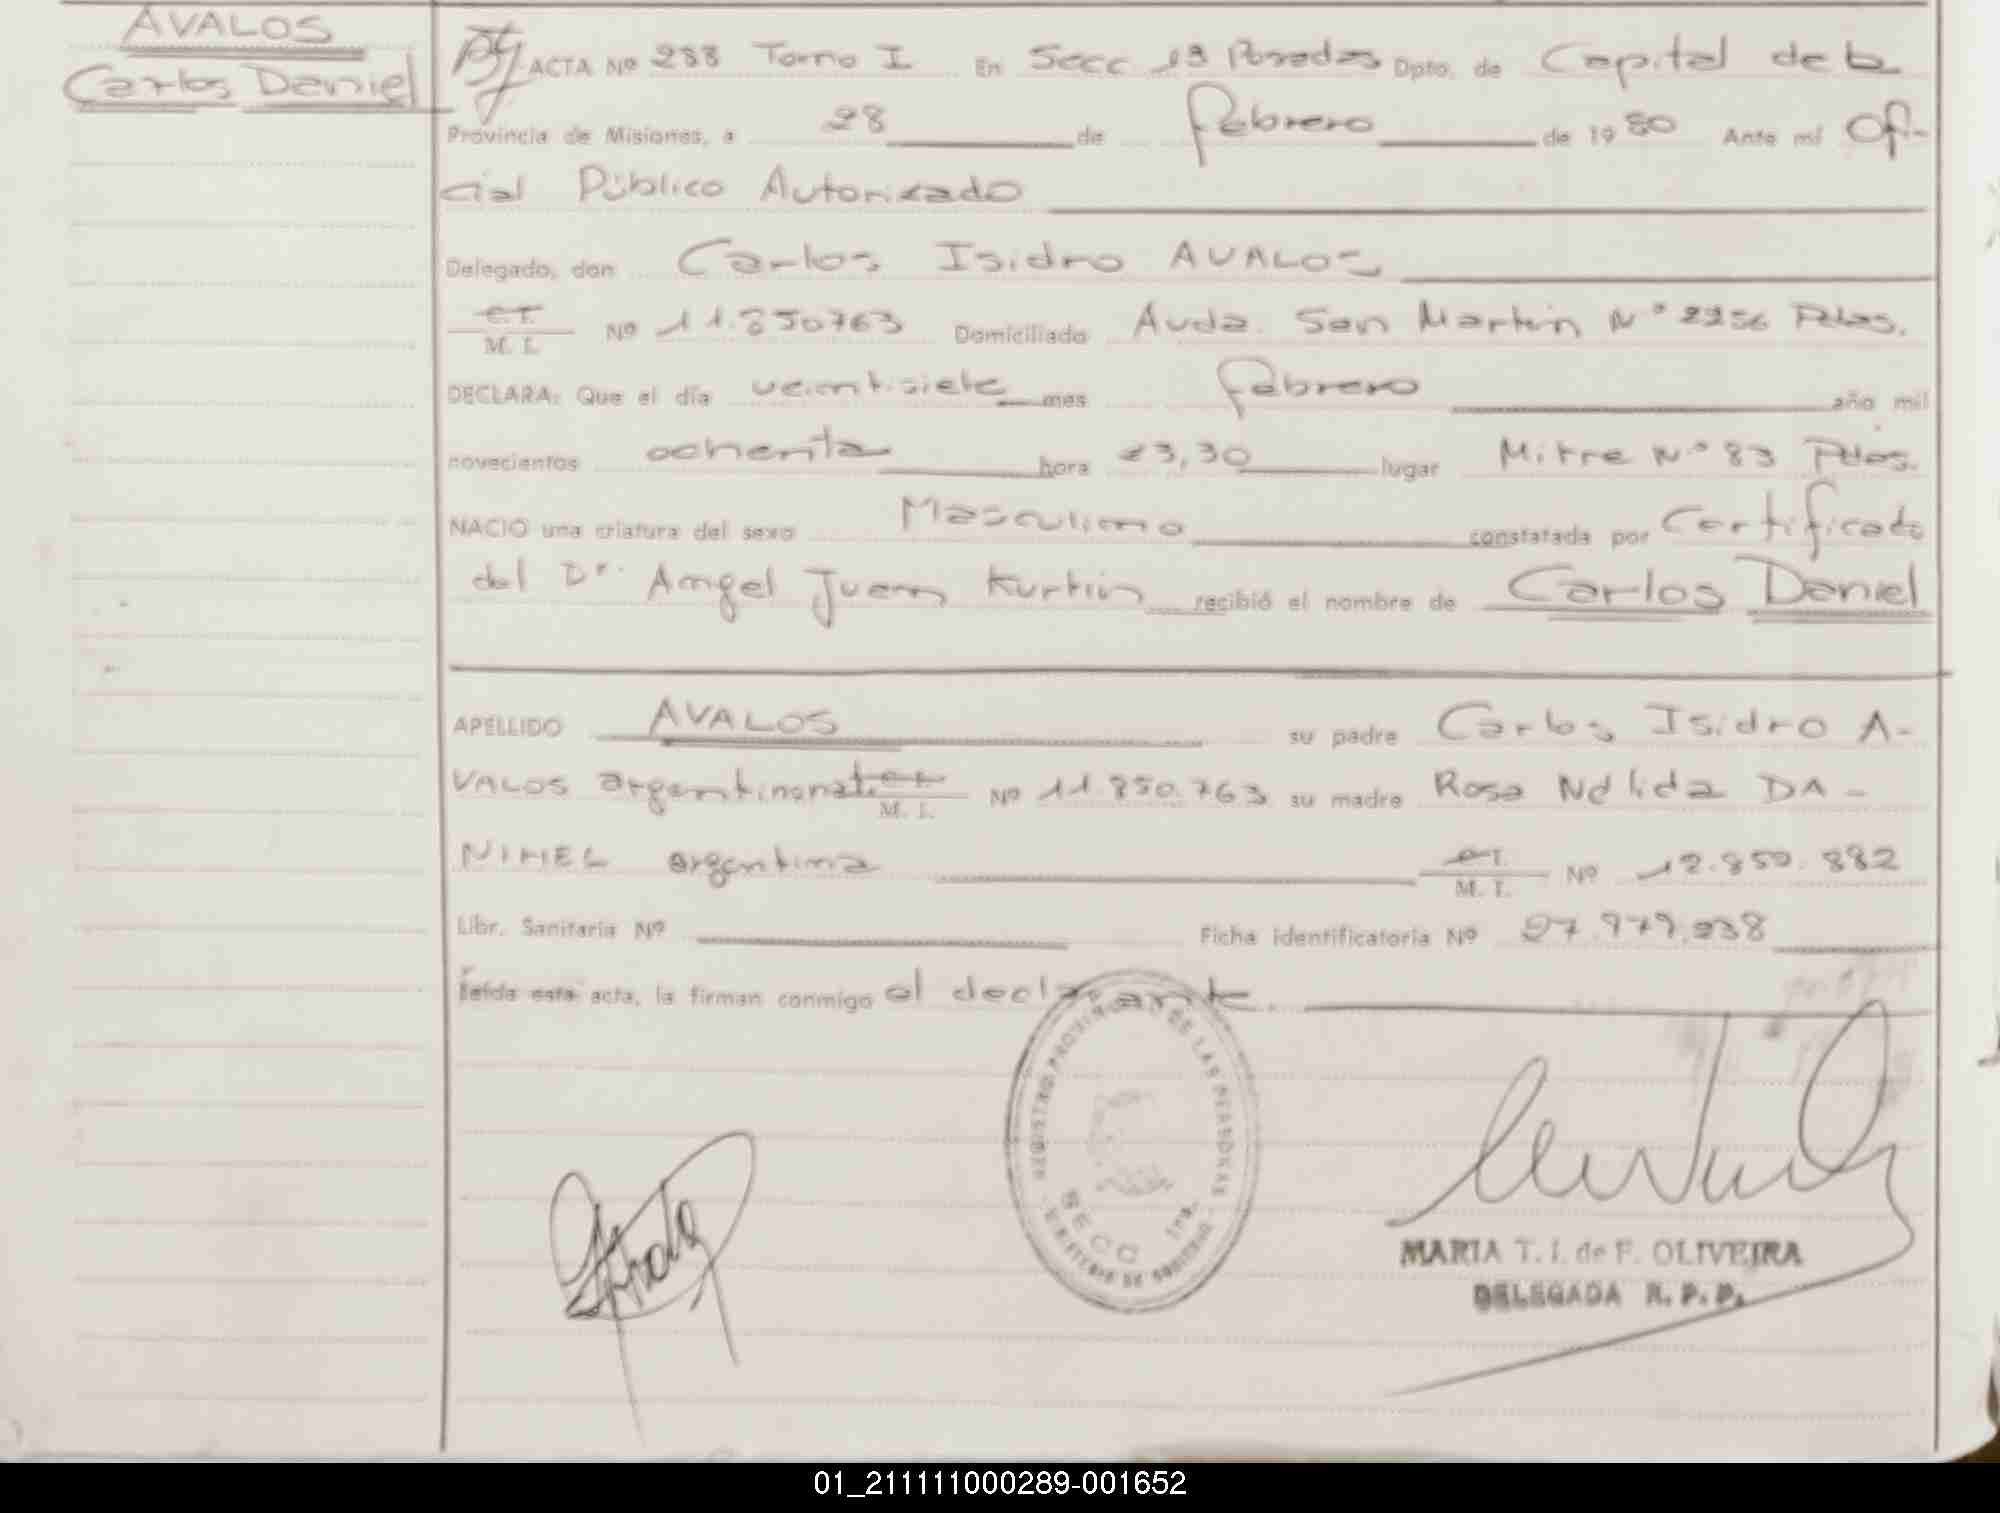 AVALOS
Carlos Daniel
ACTA Nº 288 Tomo I En Secc 1ª Posadas Dpto. de Capital de la
Provincia de Misiones, a 28 de febrero de 1980 Ante mí Ofi-
cial Público Autorizado
Delegado, don Carlos Isidro AVALOS
C.I.
M. I. Nº 11.850763 Domiciliado Avda. San Martín Nº 2256 Pdas.
DECLARA: Que el día veintisiete mes febrero año mil
novecientos ochenta hora 23,30 lugar Mitre Nº 83 Pdas.
NACIO una criatura del sexo Masculino constatada por Certificado
del Dr. Angel Juan Kurtin recibió el nombre de Carlos Daniel
APELLIDO AVALOS su padre Carlos Isidro A-
VALOS argentino nat. C.I.
M. I. Nº 11.850.763 su madre Rosa Nélida DA-
NIMEL argentina C.I.
M. I. Nº 12.850.882
Libr. Sanitaria Nº Ficha identificatoria Nº 27.979.238
Leída esta acta, la firman conmigo el declarante.
REGISTRO PROVINCIAL DE LAS PERSONAS
SECC 1ra.
MINISTERIO DE GOBIERNO
MARIA T. I. de F. OLIVEIRA
DELEGADA R. P. P.
01_211111000289-001652